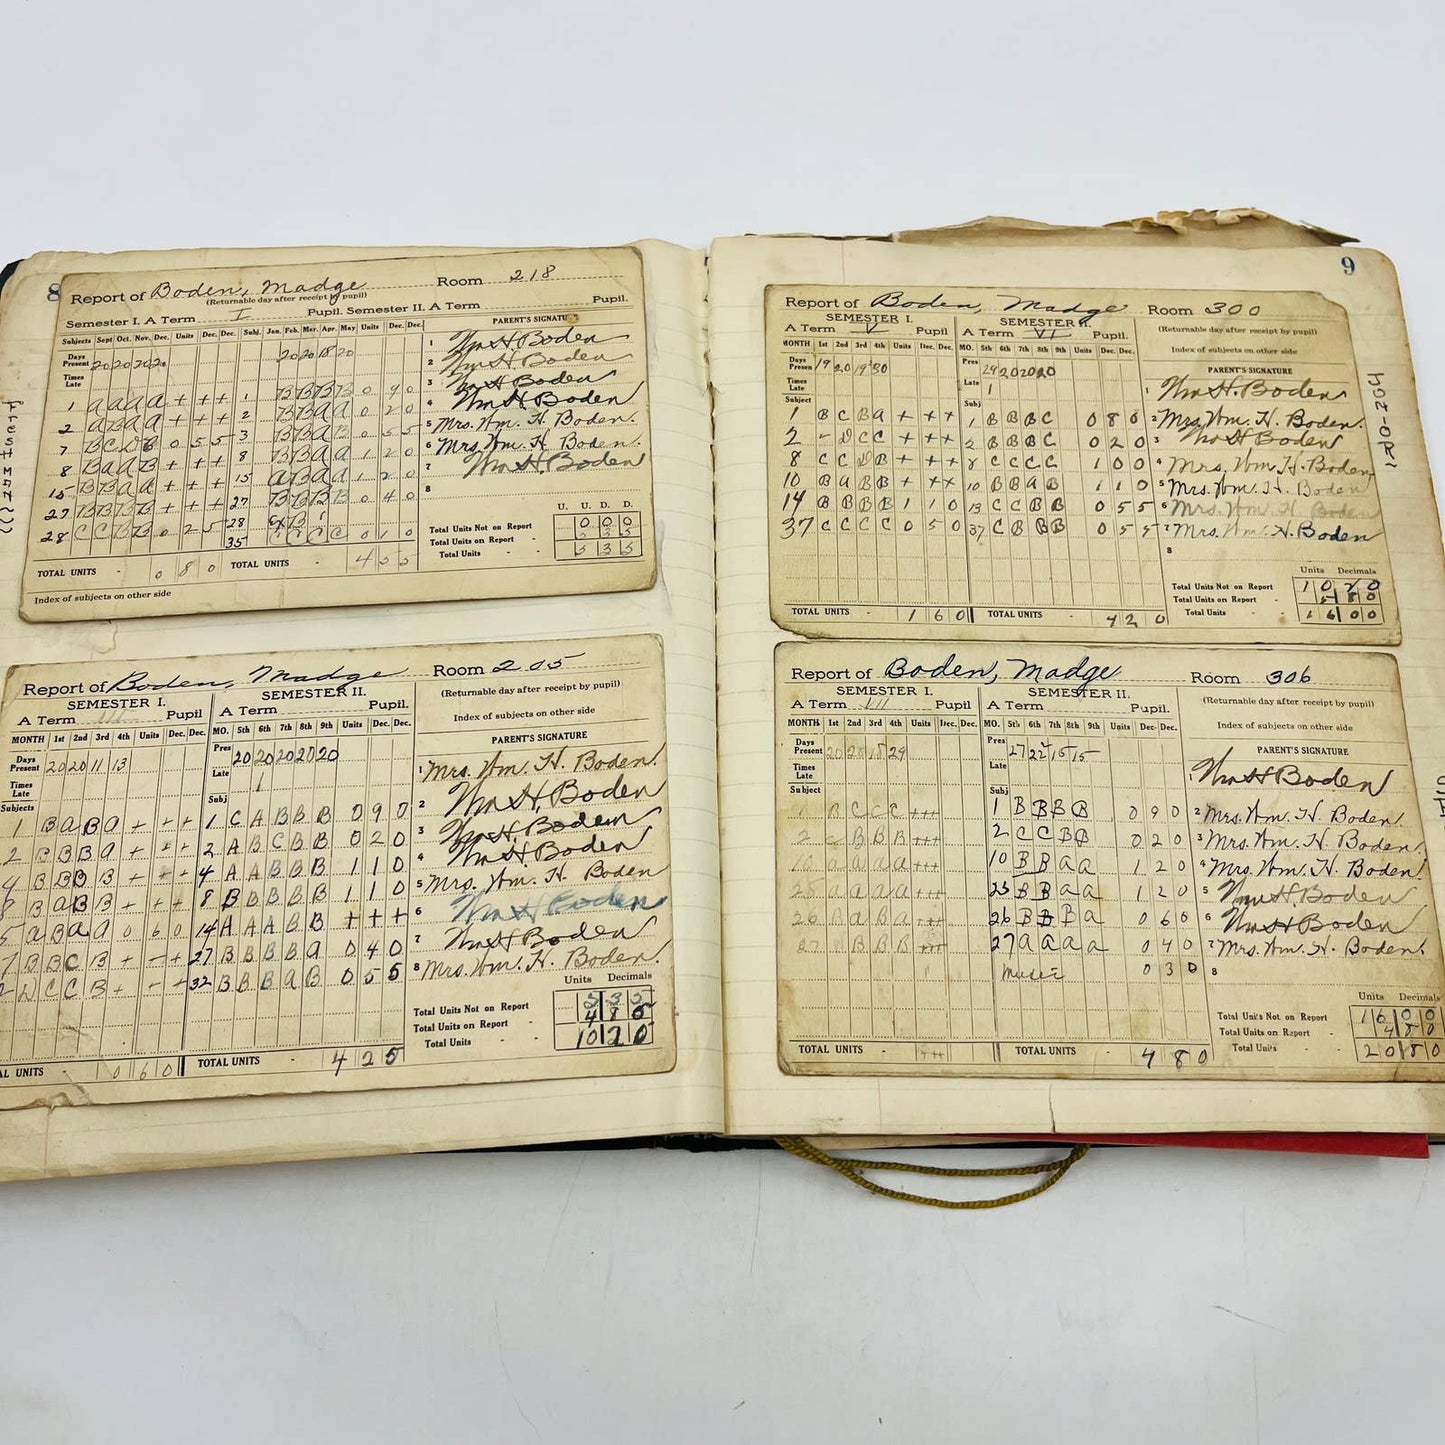 8
Report of Boden, Madge Room 218
(Returnable day after receipt by pupil)
Semester I. A Term I Pupil. Semester II. A Term Pupil.
Subjects Sept Oct. Nov. Dec. Units Dec. Dec. Subj. Jan. Feb. Mar. Apr. May Units Dec. Dec. PARENT'S SIGNATURE
Days Present 20 20 20 20 20 20 18 20
Times Late
1 Wm H Boden
2 Wm H Boden
3 Wm H Boden
4 Wm H Boden
5 Mrs. Wm. H. Boden.
6 Mrs. Wm. H. Boden.
7 Wm H Boden
8
1 a a a a + + + 1 B B B B 0 90
2 a B a a + + + 2 B B a a 0 20
7 B C D C 0 5 5 3 B B a B 0 5 5
8 B a a B + + + 8 B B a a 1 20
15 B B a a + + + 15 a B a a 1 20
27 B B B B + + + 27 B B B B 0 40
28 C C B B 0 2 5 28
35 C C C C 0 10
U. U. D. D.
Total Units Not on Report 0 0 0
Total Units on Report 5 3 5
Total Units 5 3 5
TOTAL UNITS 0 8 0 TOTAL UNITS 4 5 5
Index of subjects on other side
Report of Boden, Madge Room 205
SEMESTER I. SEMESTER II.
(Returnable day after receipt by pupil)
A Term III Pupil A Term Pupil.
Index of subjects on other side
MONTH 1st 2nd 3rd 4th Units Dec. Dec. MO. 5th 6th 7th 8th 9th Units Dec. Dec.
PARENT'S SIGNATURE
Days Present 20 20 11 13 Pres 20 20 20 20 20
Times Late Late 1
Subjects Subj
1 Mrs. Wm. H. Boden.
2 Wm H. Boden
3 Wm H. Boden
4 Wm H. Boden
5 Mrs. Wm. H. Boden
6 Wm H Boden
7 Wm H Boden
8 Mrs. Wm. H. Boden.
1 B a B a + + + 1 C A B B B 0 9 0
2 B B B a + + + 2 A B C B B 0 2 0
4 B B B B + + + 4 A A B B B 1 1 0
8 B a B B + + + 8 B B B B B 1 1 0
5 a B a a 0 6 0 14 A A A B B + + +
7 B B C B + - + 27 B B B B a 0 4 0
2 D C C B + - + 32 B B B a B 0 5 5
Units Decimals
Total Units Not on Report 5 3 5
Total Units on Report 4 8 5
Total Units 10 2 0
AL UNITS 0 6 0 TOTAL UNITS 4 2 5
9
Report of Boden, Madge Room 300
SEMESTER I. SEMESTER II.
(Returnable day after receipt by pupil)
A Term V Pupil A Term VI Pupil.
Index of subjects on other side
MONTH 1st 2nd 3rd 4th Units Dec. Dec. MO. 5th 6th 7th 8th 9th Units Dec. Dec.
PARENT'S SIGNATURE
Days Presen 19 20 19 30 Pres 29 20 20 20
Times Late Late 1
Subject Subj
1 Wm H. Boden
2 Mrs. Wm. H. Boden.
3 Wm H Boden
4 Mrs. Wm. H. Boden
5 Mrs. Wm. H. Boden
6 Mrs. Wm. H. Boden
7 Mrs. Wm. H. Boden
8
1 B C B a + + + 1 B B B C 0 8 0
2 - D C C + + + 2 B B B C 0 2 0
8 C C D B + + + 8 C C C C 1 0 0
10 B a B B + + + 10 B B a B 1 1 0
14 B B B B 1 1 0 13 C C B B 0 5 5
37 C C C C 0 5 0 37 C B B B 0 5 5
Units Decimals
Total Units Not on Report 1 0 2 0
Total Units on Report 5 8 0
Total Units 1 6 0 0
TOTAL UNITS 1 6 0 TOTAL UNITS 4 2 0
Report of Boden, Madge Room 306
SEMESTER I. SEMESTER II.
(Returnable day after receipt by pupil)
A Term VII Pupil A Term Pupil.
Index of subjects on other side
MONTH 1st 2nd 3rd 4th Units Dec. Dec. MO. 5th 6th 7th 8th 9th Units Dec Dec.
PARENT'S SIGNATURE
Days Present 20 20 18 29 Pres 27 22 15 15
Times Late Late
Subject Subj
1 Wm H Boden
2 Mrs. Wm. H. Boden.
3 Mrs. Wm. H. Boden.
4 Mrs. Wm. H. Boden.
5 Wm H Boden
6 Wm H Boden
7 Mrs. Wm. H. Boden.
8
1 B C C C +++ 1 B B B B 0 9 0
2 C B B B +++ 2 C C B B 0 2 0
10 a a a a +++ 10 B B a a 1 2 0
25 a a a a +++ 25 B B a a 1 2 0
26 B a B a +++ 26 B B B a 0 6 0
27 B B B +++ 27 a a a a 0 4 0
Music 0 3 0
Units Decimals
Total Units Not on Report 1 6 0 0
Total Units on Report 4 8 0
Total Units 2 0 8 0
TOTAL UNITS TOTAL UNITS 4 8 0